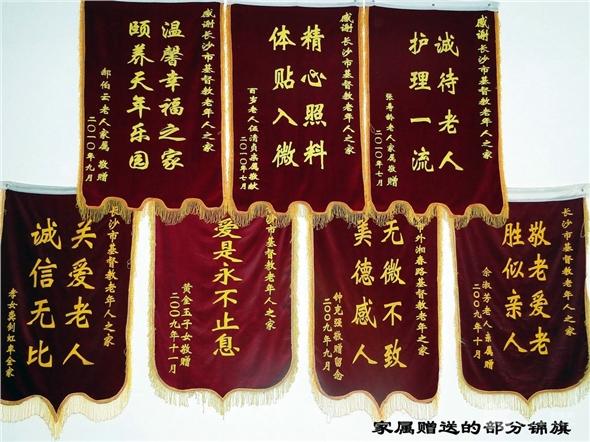 感谢长沙市基督教老年人之家
温馨幸福之家
颐养天年乐园
郝伯云老人家属 敬赠
二〇一〇年九月
感谢长沙市基督教老年人之家
精心照料
体贴入微
百岁老人伍清贞亲属敬献
二〇一〇年七月
感谢长沙市基督教老年人之家
诚待老人
护理一流
张寿龄老人家属 敬赠
二〇一〇年七月
长沙市基督教老年人之家
关爱老人
诚信无比
李女英剑虹率全家
沙市基督教老年人之家
爱是永不止息
黄金玉子女敬赠
二〇〇九年十一月
市外湘春路基督教老年人之家
无微不致
美德感人
钟克强敬赠留念
二〇〇九年九月
长沙市基督教老年人之家
敬老爱老
胜似亲人
余淑芳老人亲属赠
二〇〇九年
家属赠送的部分锦旗